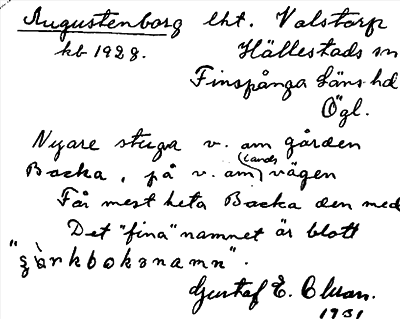 Augustenborg lht. Valstorp
kb 1928. Hällestads sn
Finspånga Läns hd
Ögl.
Nyare stuga v. om gården
Backa, på v. om (Lands) vägen
Får mest heta Backa den med
Det "fina" namnet är blott
"kyrkboksnamn".
Gustaf E.
1931